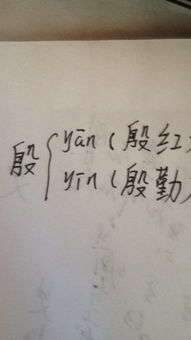 殷
yān（殷红）
yīn（殷勤）